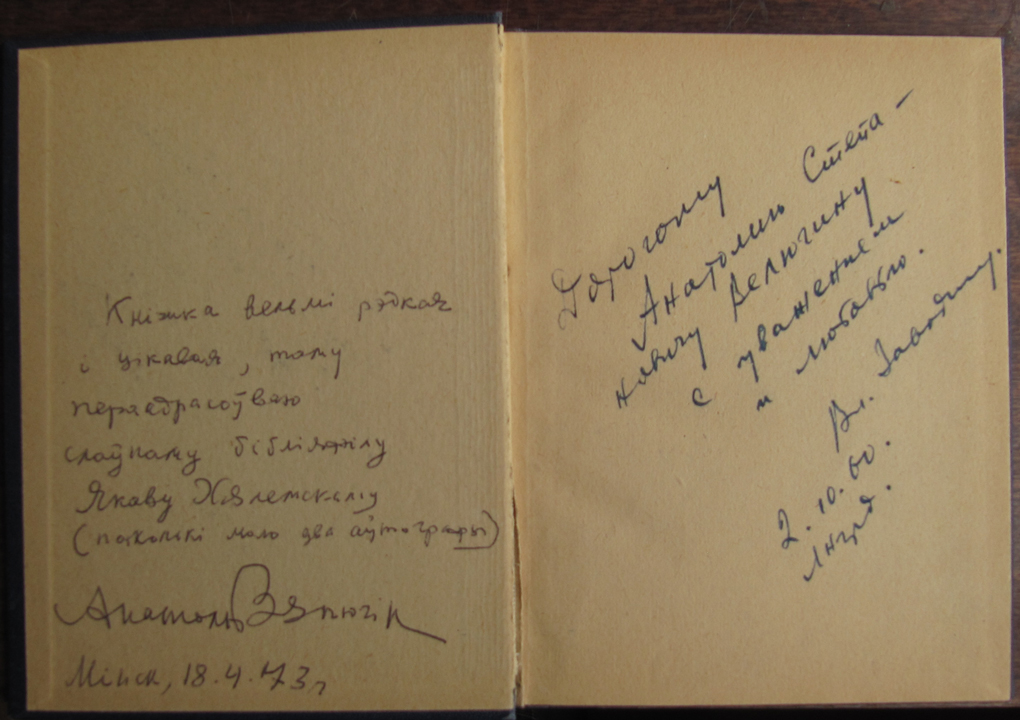 Кніжка вельмі рэдкая
і цікавая, таму
пераадрасоўваю
слаўнаму бібліяфілу
Якаву Хелемскаму
(паколькі мало два аўтографы)
Анатоль Вялюгін
Мінск, 18.4.73 г
Дорогому
Анатолию Степа-
новичу Велюгину
с уважением
и любовью.
Вл.
2.10.60.
Лнгрд.